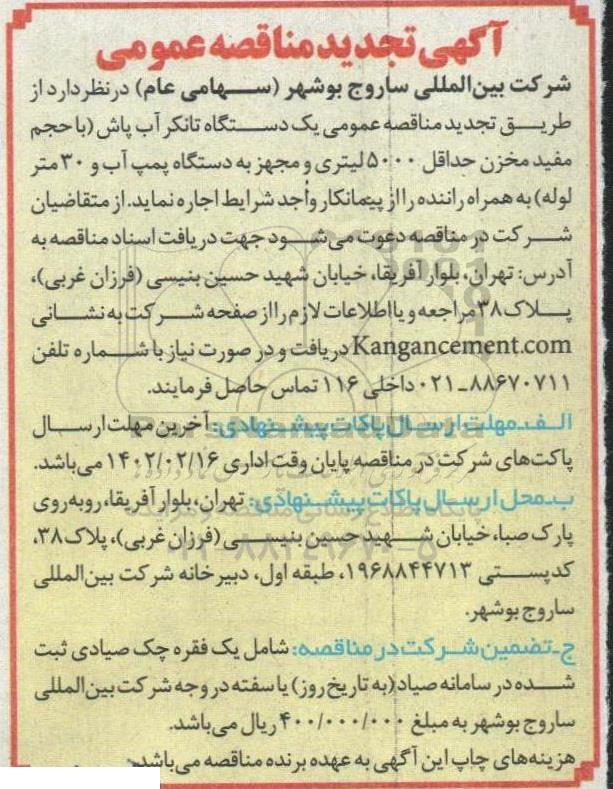 آگهی تجدید مناقصه عمومی
شرکت بین‌المللی ساروج بوشهر (سهامی عام) درنظر دارد از
طریق تجدید مناقصه عمومی یک دستگاه تانکر آب پاش (با حجم
مفید مخزن حداقل ۵۰۰۰ لیتری و مجهز به دستگاه پمپ آب و ۳۰ متر
لوله) به همراه راننده را از پیمانکار واجد شرایط اجاره نماید. از متقاضیان
شرکت در مناقصه دعوت می‌شود جهت دریافت اسناد مناقصه به
آدرس: تهران، بلوار آفریقا، خیابان شهید حسین بنیسی (فرزان غربی)،
پلاک ۳۸ مراجعه و یا اطلاعات لازم را از صفحه شرکت به نشانی
Kangancement.com دریافت و در صورت نیاز با شماره تلفن
۰۲۱-۸۸۶۷۰۷۱۱ داخلی ۱۱۶ تماس حاصل فرمایند.
الف-مهلت ارسال پاکات پیشنهادی: آخرین مهلت ارسال
پاکت‌های شرکت در مناقصه پایان وقت اداری ۱۴۰۲/۰۲/۱۶ می‌باشد.
ب-محل ارسال پاکات پیشنهادی: تهران، بلوار آفریقا، روبه‌روی
پارک صبا، خیابان شهید حسین بنیسی (فرزان غربی)، پلاک ۳۸،
کدپستی ۱۹۶۸۸۴۴۷۱۳، طبقه اول، دبیرخانه شرکت بین‌المللی
ساروج بوشهر.
ج-تضمین شرکت در مناقصه: شامل یک فقره چک صیادی ثبت
شده در سامانه صیاد (به تاریخ روز) یا سفته در وجه شرکت بین‌المللی
ساروج بوشهر به مبلغ ۴۰۰/۰۰۰/۰۰۰ ریال می‌باشد.
هزینه‌های چاپ این آگهی به عهده برنده مناقصه می‌باشد.